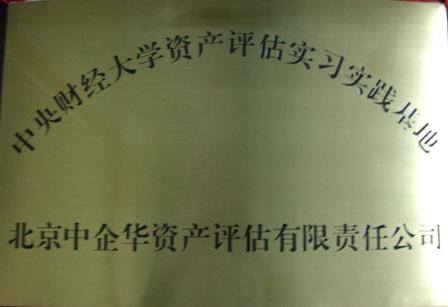 中央财经大学资产评估实习实践基地
北京中企华资产评估有限责任公司